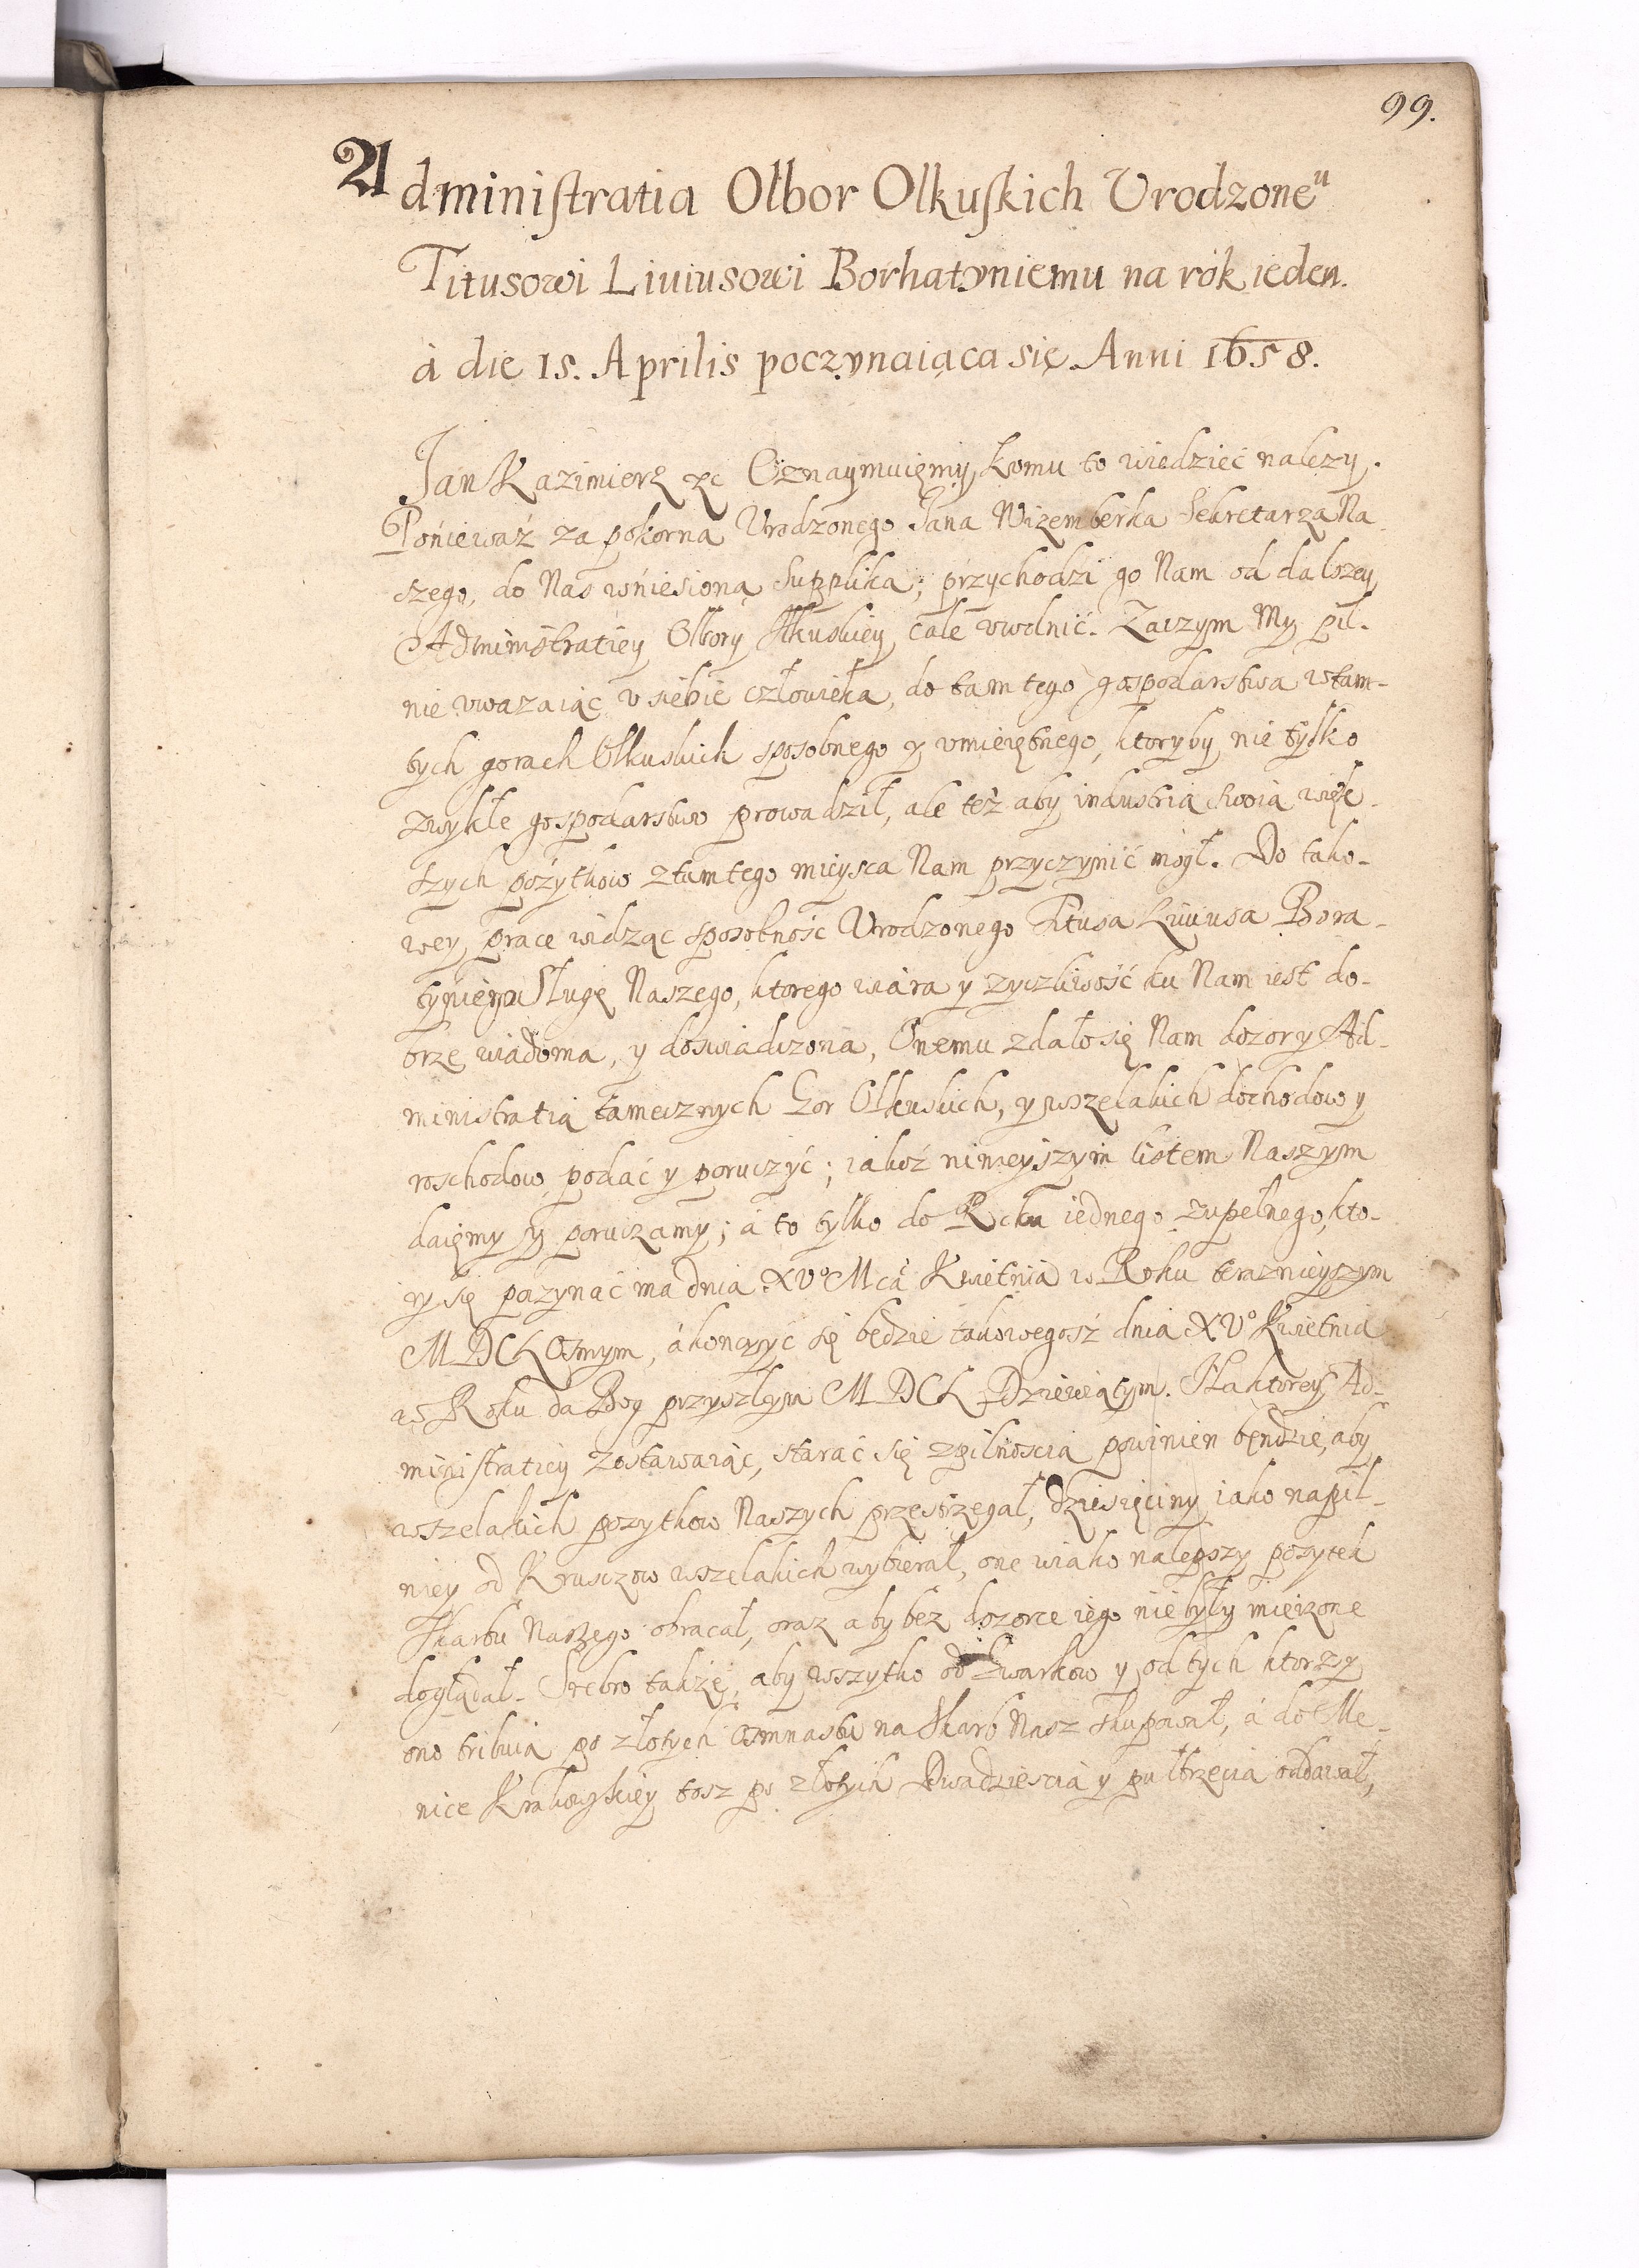 99.
Administratia Olbor Olkuskich Urodzone^u
Titusowi Liuiusowi Borhatyniemu na rok ieden.
à die 15. Aprilis poczynaiąca się Anni 1658.
Jan Kazimierz &c Oznaymuięmy komu to wiedzieć nalezy.
Poniewaz za pokorna Urodzonego Jana Wizemberka Sekretarza Na
szego, do Nas wniesioną Suppliką; przychodzi go Nam od dalszey
Administratiey Olbory Ilkuskiey cale vwolnić. Zaczym My pil-
nie vwazaiąc v siebie człowieka, do tamtego gospodarstwa wtam-
tych gorach Olkuskich sposobnego y vmieiętnego, ktoryby nie tylko
zwykłe gospodarstwo prowadził, ale też aby industrią swoią więk-
szych pożytkow ztamtego mieysca Nam przyczynić mógł. Do tako-
wey prace widząc sposobność Urodzonego Titusa Liuiusa Bora-
tyniego Sługę Naszego, ktorego wiara y zyczliwość ku Nam iest do-
brze wiadoma, y doswiadczona, Onemu zdało się Nam dozor y Ad-
ministratią tamecznych Gor Olkuskich, y wszelakich dochodow y
roschodow podać y poruczyć; iakoż ninieyszym listem Naszym
daięmy y poruczamy; á to tylko do Roku iednego zupełnego, kto-
ry się poczynać ma dnia XV° Mca Kwietnia w Roku teraznieyszym
MDCL Osmym, á konczyć się będzie takowegoż dnia XV° Kwietnia
w Roku da Bog przyszłym MDCL Dziewiątym. Na ktorey Ad-
ministratiey zostawaiąc, starać się z pilnoscią powinien będzie, aby
wszelakich pozytkow Naszych przestrzegał, dziesięciny iako napil-
niey od Kruszcow wszelakich wybierał, one wiako nalepszy pozytek
Skarbu Naszego obracał, oraz aby bez dozorce iego nie były mierzone
doglądał. Srebro takze, aby wszytko od Gwarkow y od tych ktorzy
ono tribuią po złotych Osmnastu na Skarb Nasz skupował, á do Me-
nice Krakowskiey tosz po złotych Dwadziescia y pułtrzecia oddawał,